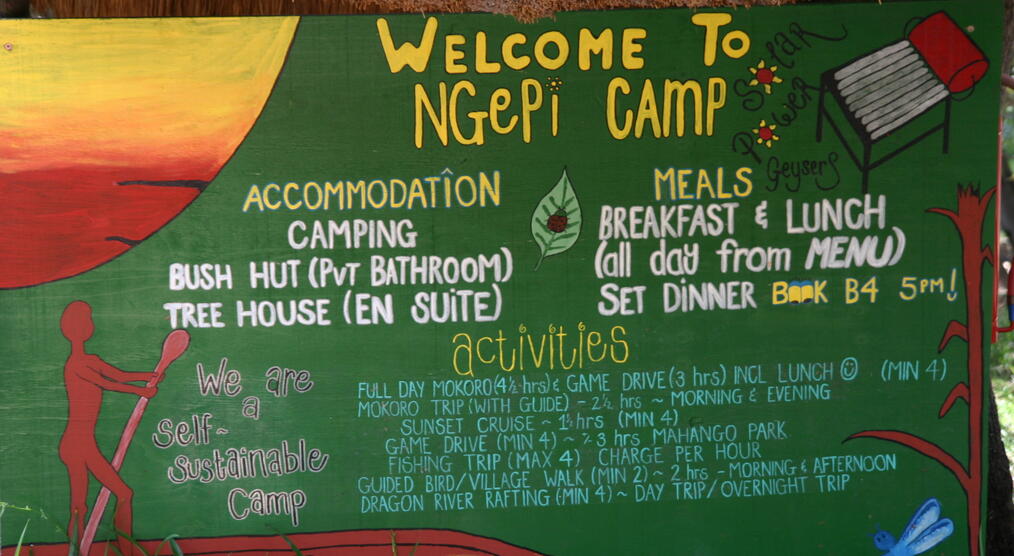 WELCOME TO
NGePi CAMP
SOLAR
POWER
Geysers
ACCOMMODATION
CAMPING
BUSH HUT (PVT BATHROOM)
TREE HOUSE (EN SUiTE)
MEALS
BREAKFAST & LUNCH
(all day from MENU)
SET DiNNER BOOK B4 5PM!
activities
FULL DAY MOKORO (4½ hrs) & GAME DRIVE (3 hrs) INCL LUNCH ☺ (MIN 4)
MOKORO TRIP (WITH GUIDE) - 2½ hrs ~ MORNING & EVENING
SUNSET CRUISE ~ 1½ hrs (MIN 4)
GAME DRIVE (MIN 4) ~ 3 hrs MAHANGO PARK
FISHING TRIP (MAX 4) CHARGE PER HOUR
GUIDED BIRD/VILLAGE WALK (MIN 2) ~ 2 hrs - MORNING & AFTERNOON
DRAGON RIVER RAFTING (MIN 4) ~ DAY TRIP/OVERNIGHT TRIP
We are
a
self~
sustainable
Camp